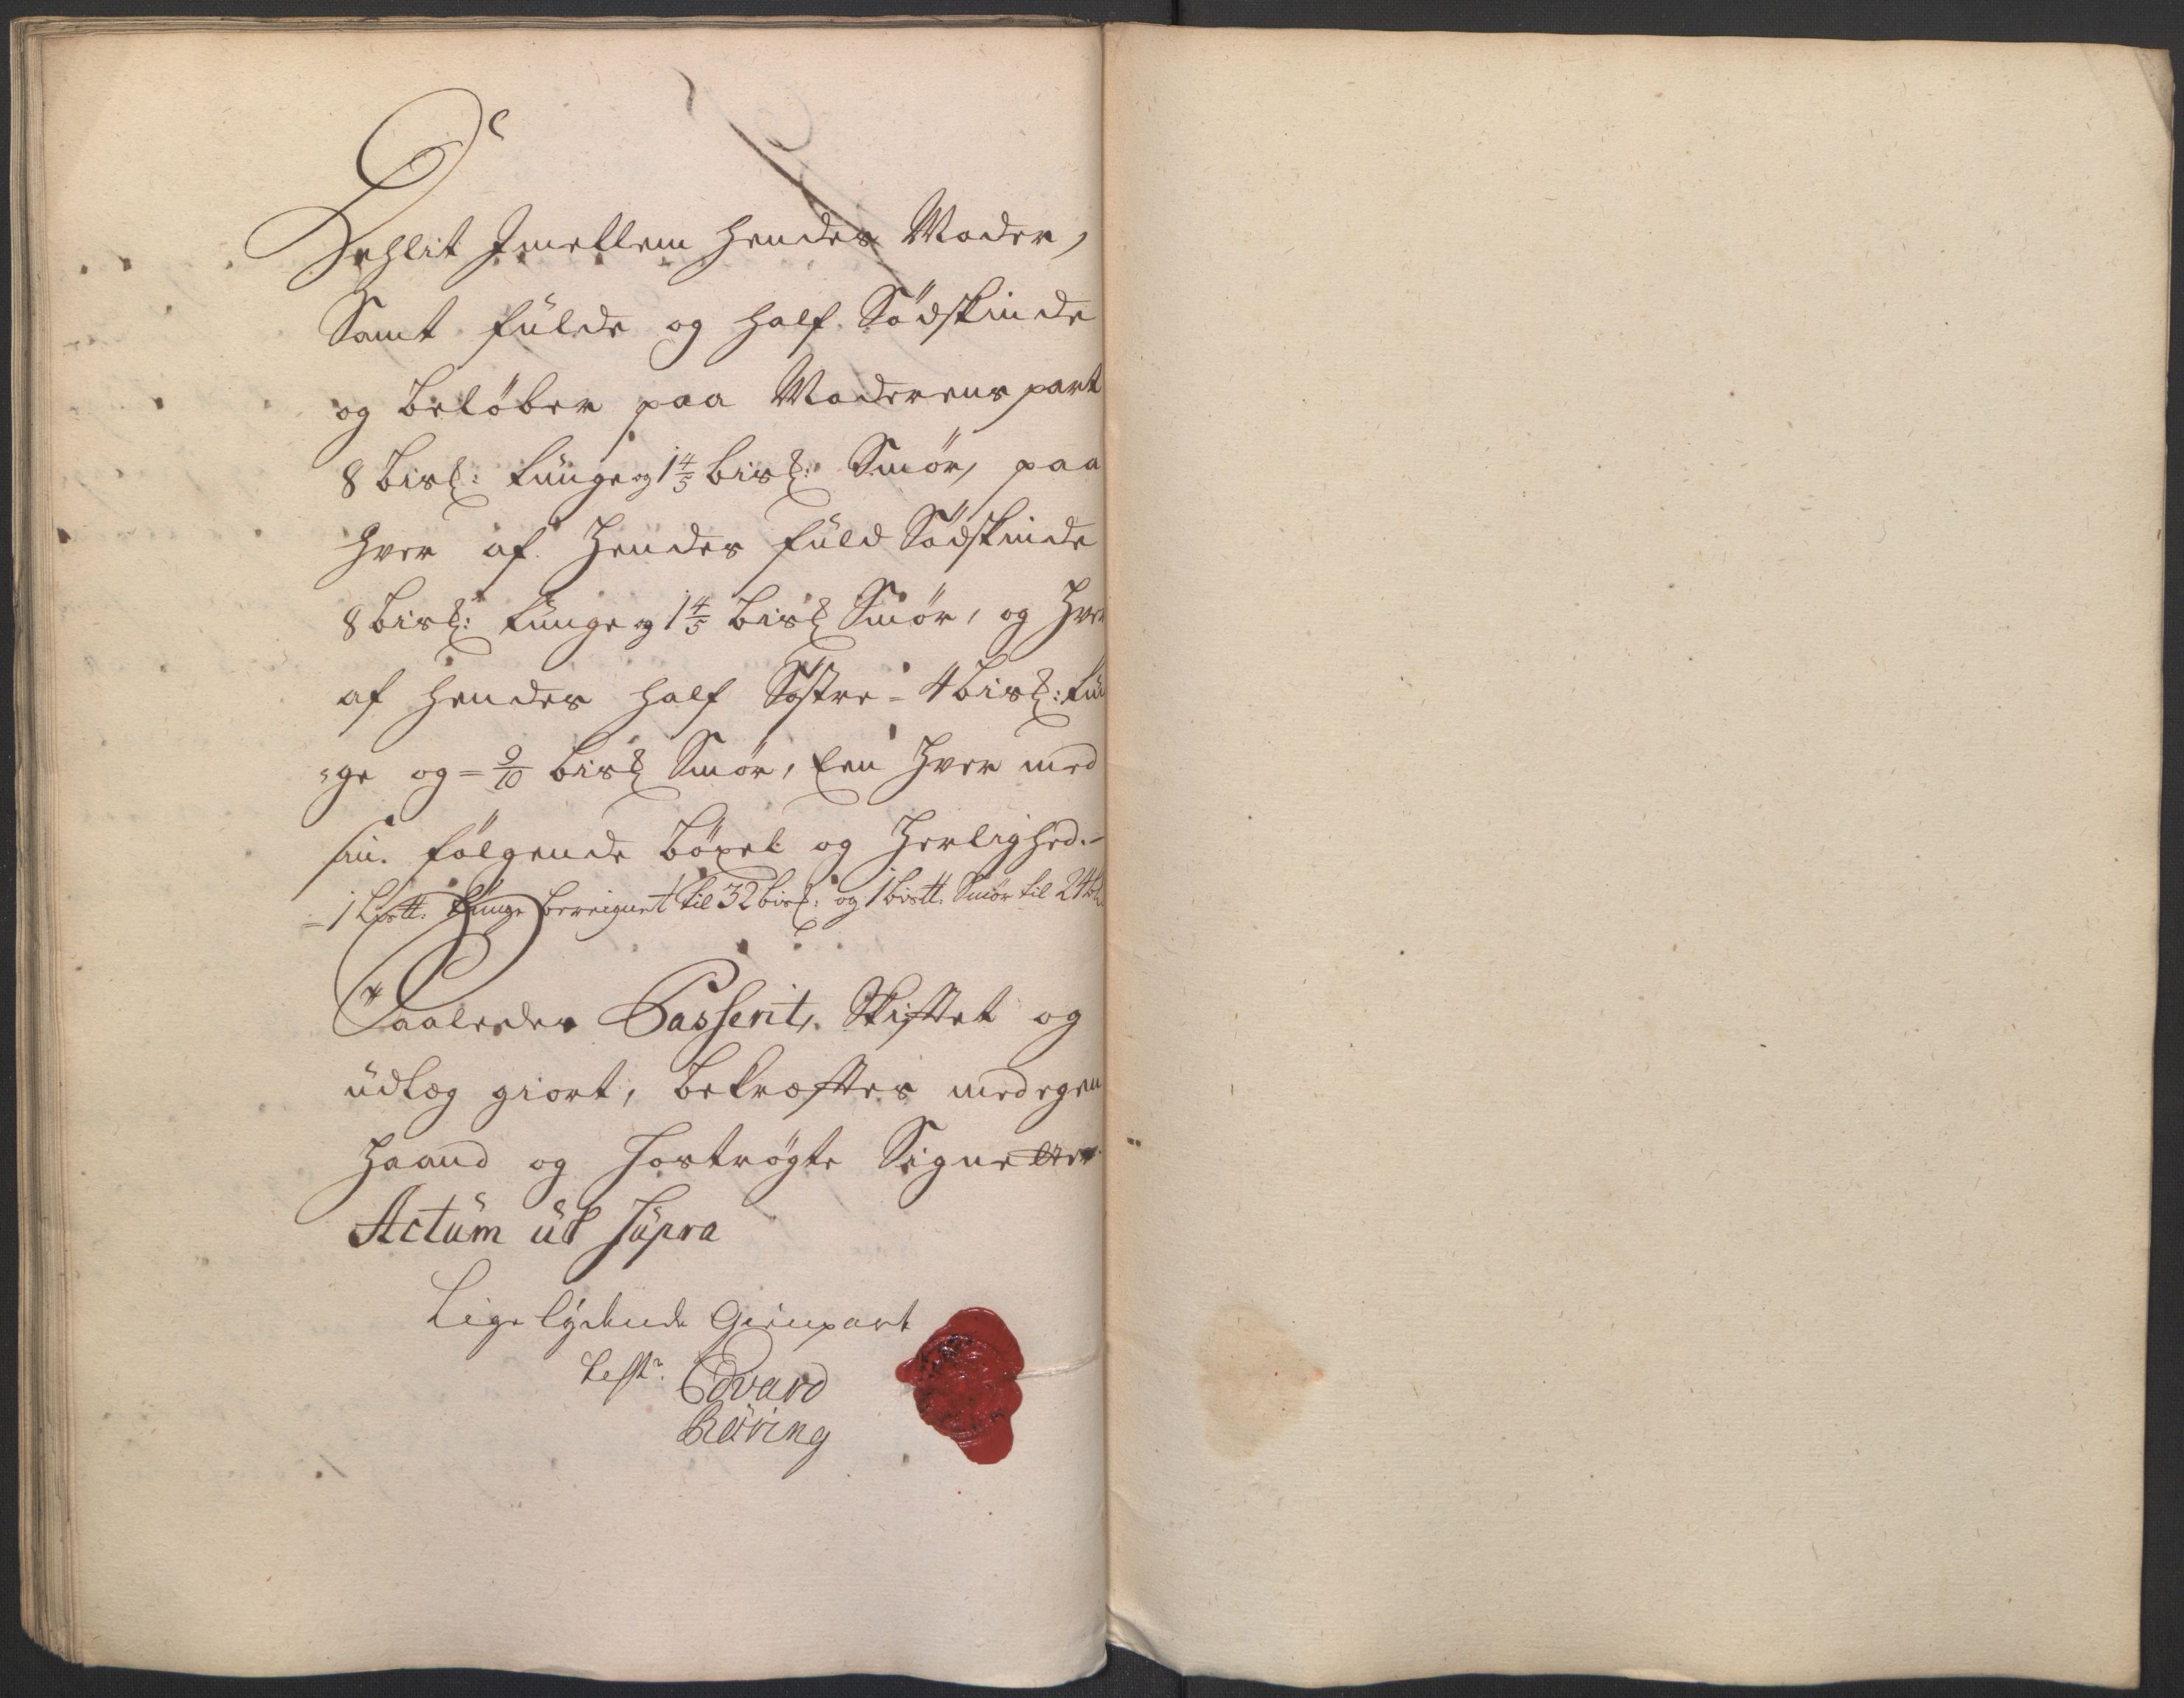 Dehlit Imellem hendes Moder,
Samt fulde og half Södskinde
og belöber paa Moderens part
8 bis℔: tunge og 1 4/5 bis℔: Smör, paa
hver af hendes fuld Södskinde
8 bis℔: tunge og 1 4/5 bis℔ Smör, og hver
af hendes half Söstre = 4 bis℔: tun
=ge og = 9/10 bis℔ Smör, Een hver med
sin følgende böxel og herlighed.
= 1 tunge bereignet til 32 bis℔: og 1 Smör til 24
Saaledes Passerit, Skiftet og
üdlæg giort, bekræftes med egen
haand og hoströgte Signetter
Actüm üt süpra
Lige lÿdende Gienpart
test: Edvard
Röring